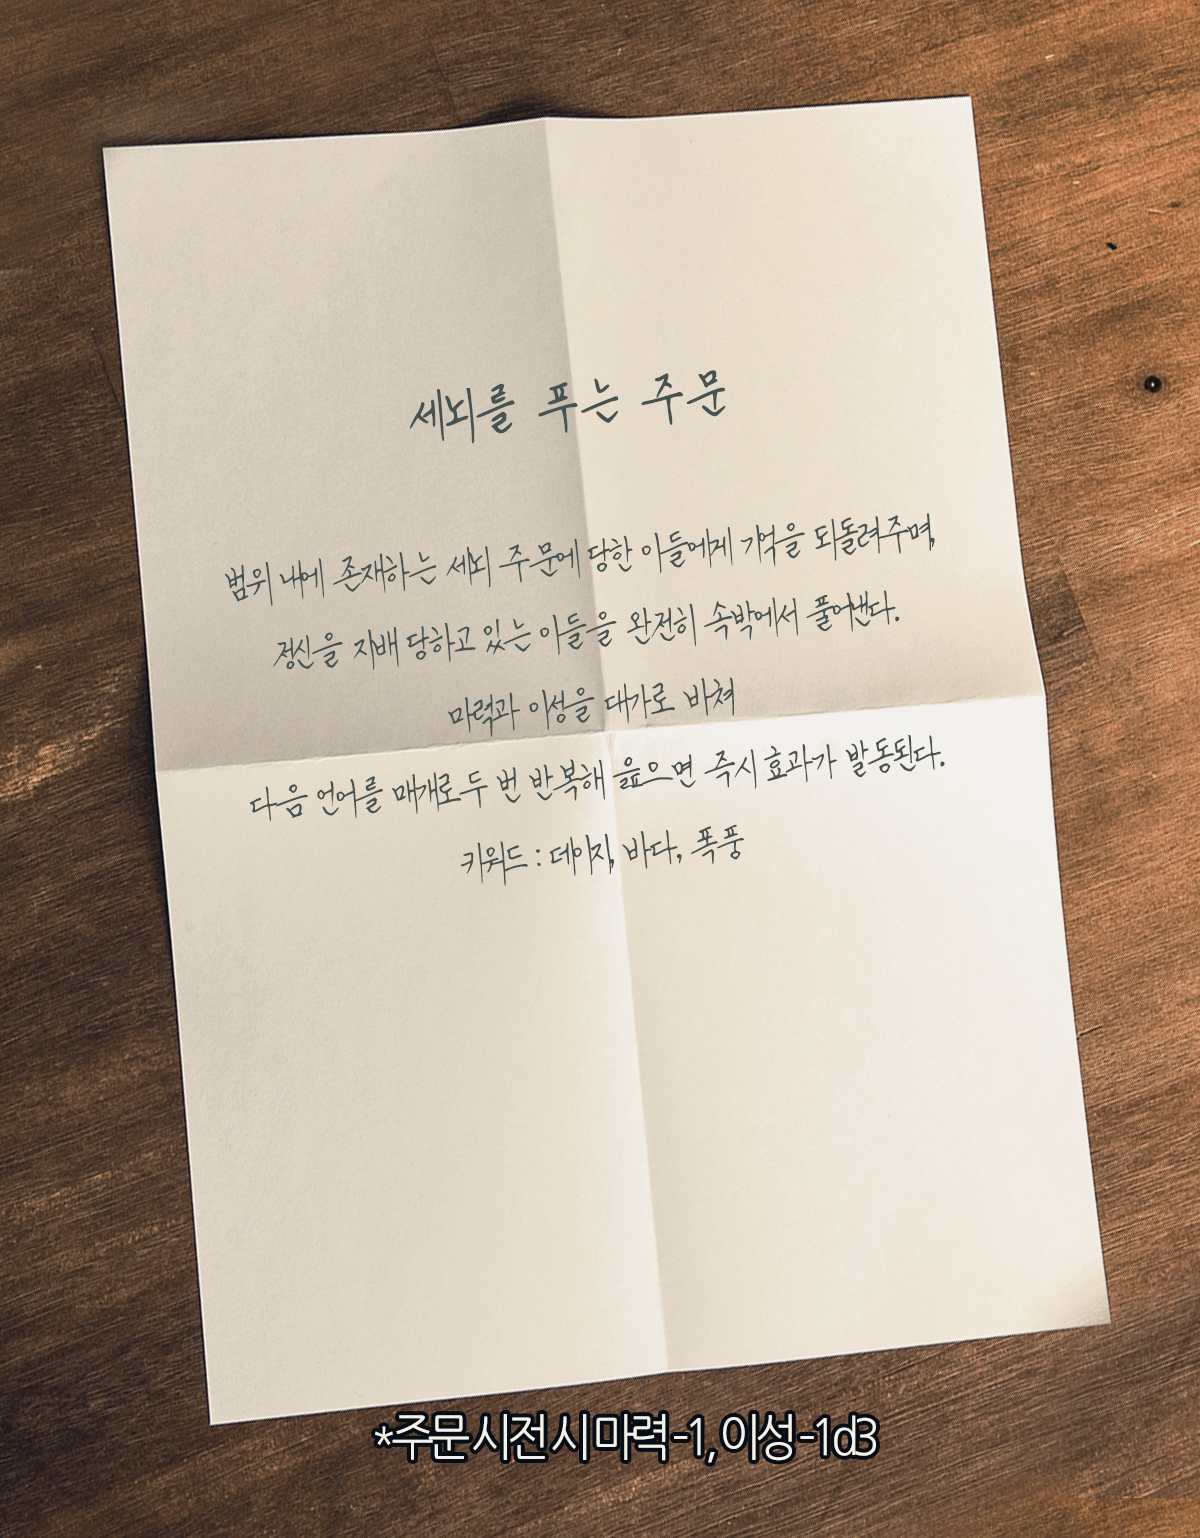 세뇌를 푸는 주문
범위 내에 존재하는 세뇌 주문에 당한 이들에게 기억을 되돌려주며,
정신을 지배 당하고 있는 이들을 완전히 속박에서 풀어낸다.
마력과 이성을 대가로 바쳐
다음 언어를 매개로 두 번 반복해 읊으면 즉시 효과가 발동된다.
키워드 : 데이지, 바다, 폭풍
*주문 시전 시 마력 -1, 이성 -1d3